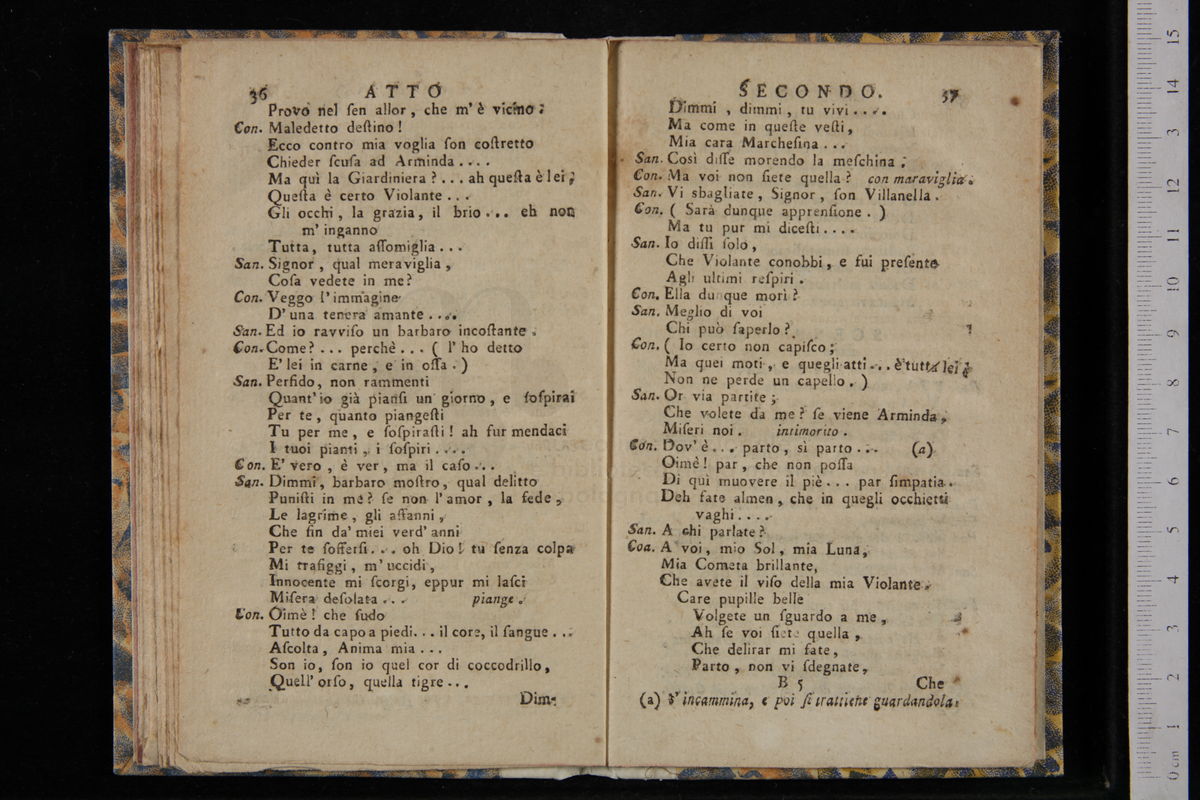 36 ATTO
Provo nel ſen allor, che m'è vicino:
Con. Maledetto deſtino!
Ecco contro mia voglia ſon coſtretto
Chieder ſcuſa ad Arminda....
Ma quì la Giardiniera?... ah queſta è lei;
Queſta è certo Violante...
Gli occhi, la grazia, il brio... eh non
m'inganno
Tutta, tutta aſſomiglia...
San. Signor, qual meraviglia,
Coſa vedete in me?
Con. Veggo l'immagine
D'una tenera amante....
San. Ed io ravviſo un barbaro incoſtante.
Con. Come?... perchè... ( l'ho detto
E' lei in carne, e in oſſa. )
San. Perfido, non rammenti
Quant'io già pianſi un giorno, e ſoſpirai
Per te, quanto piangeſti
Tu per me, e ſoſpiraſti! ah fur mendaci
I tuoi pianti, i ſoſpiri....
Con. E' vero, è ver, ma il caſo...
San. Dimmi, barbaro moſtro, qual delitto
Puniſti in me? ſe non l'amor, la fede,
Le lagrime, gli affanni,
Che fin da' miei verd'anni
Per te ſofferſi... oh Dio! tu ſenza colpa
Mi trafiggi, m'uccidi,
Innocente mi ſcorgi, eppur mi laſci
Miſera deſolata... piange.
Con. Oimè! che ſudo
Tutto da capo a piedi... il core, il ſangue...
Aſcolta, Anima mia...
Son io, ſon io quel cor di coccodrillo,
Quell'orſo, quella tigre...
Dim-
SECONDO. 57
Dimmi, dimmi, tu vivi....
Ma come in queſte veſti,
Mia cara Marcheſina...
San. Così diſſe morendo la meſchina.
Con. Ma voi non ſiete quella? con maraviglia.
San. Vi sbagliate, Signor, ſon Villanella.
Con. ( Sarà dunque apprenſione. )
Ma tu pur mi diceſti....
San. Io diſſi ſolo,
Che Violante conobbi, e fui preſente
Agli ultimi reſpiri.
Con. Ella dunque morì?
San. Meglio di voi
Chi può ſaperlo?
Con. ( Io certo non capiſco;
Ma quei moti, e quegli atti... è tutta lei;
Non ne perde un capello. )
San. Or via partite;
Che volete da me? ſe viene Arminda,
Miſeri noi. intimorito.
Con. Dov'è... parto, sì parto... (a)
Oimè! par, che non poſſa
Di quì muovere il piè... par ſimpatia.
Deh fate almen, che in quegli occhietti
vaghi....
San. A chi parlate?
Coa. A voi, mio Sol, mia Luna,
Mia Cometa brillante,
Che avete il viſo della mia Violante.
Care pupille belle
Volgete un ſguardo a me,
Ah ſe voi ſiete quella,
Che delirar mi fate,
Parto, non vi ſdegnate,
B 5 Che
(a) S'incammina, e poi ſi trattiene guardandola.